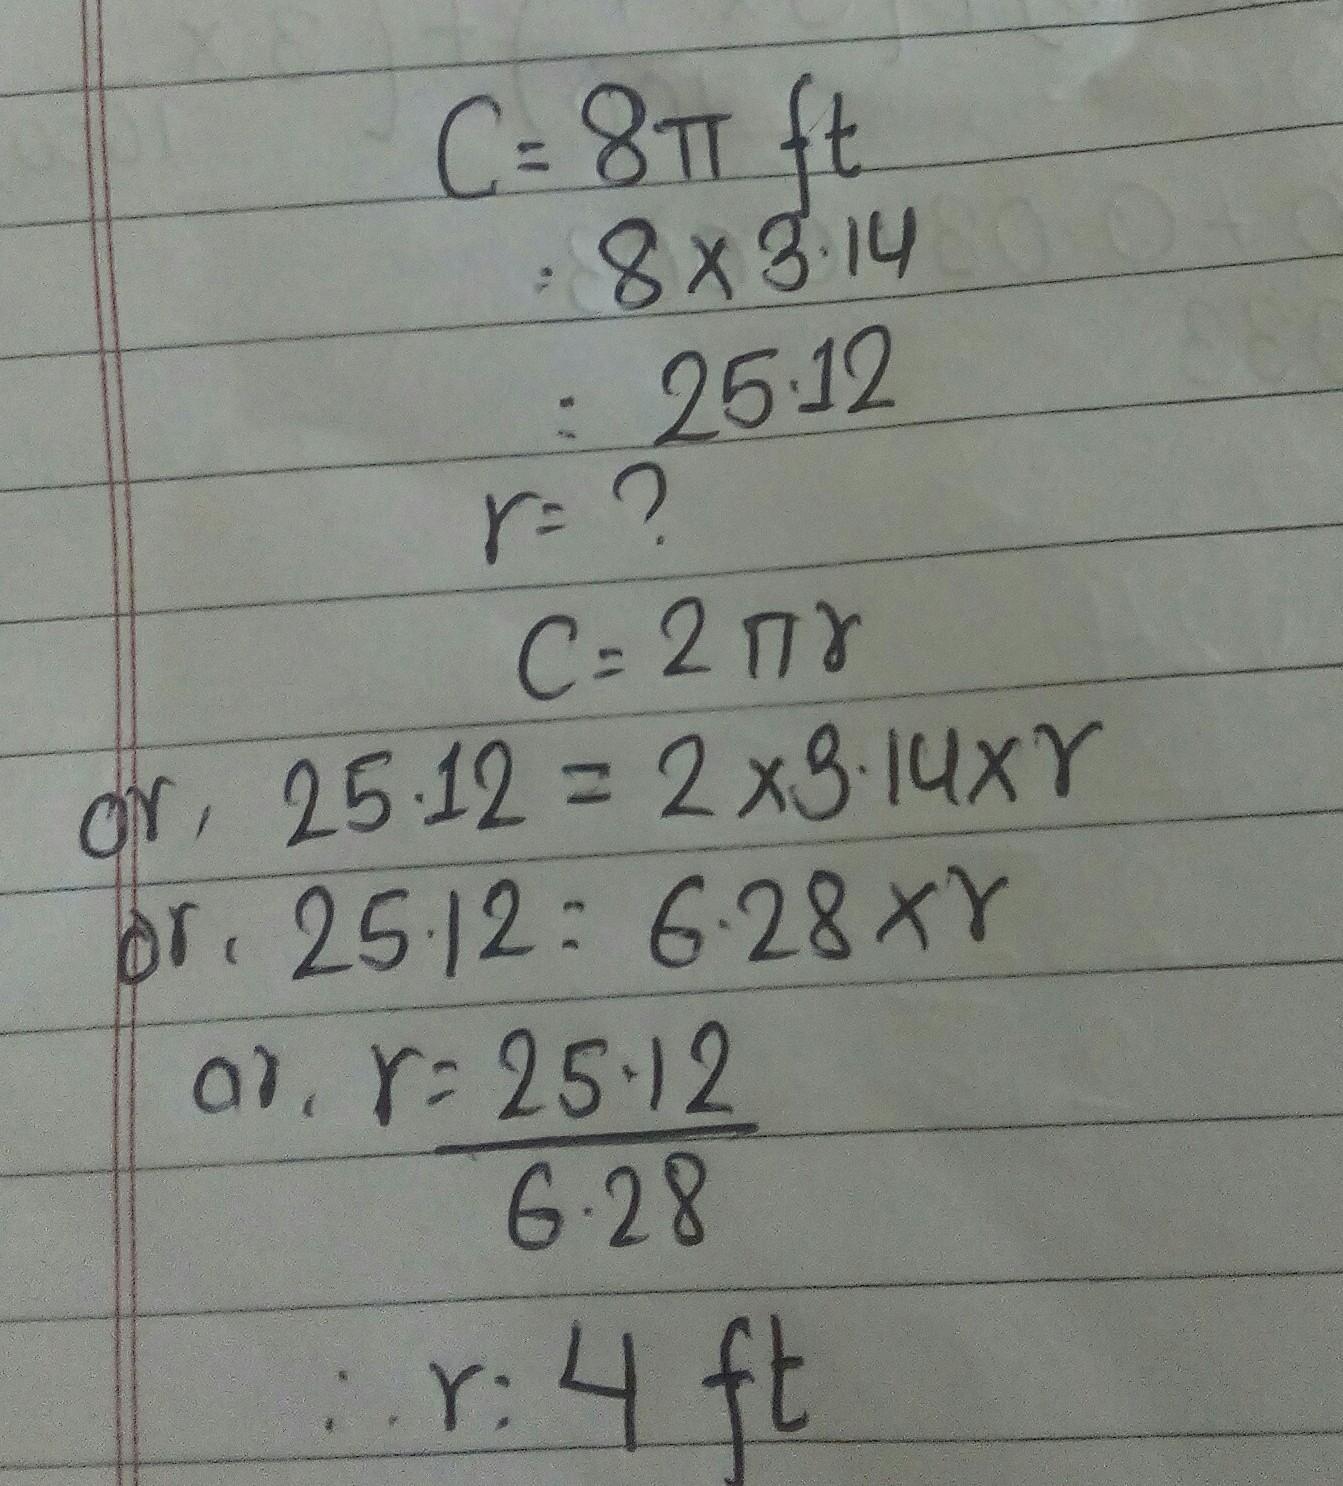 C = 8π ft
= 8 × 3.14
= 25.12
r = ?
C = 2πr
or, 25.12 = 2 × 3.14 × r
or, 25.12 = 6.28 × r
or, r = 25.12
6.28
∴ r = 4 ft